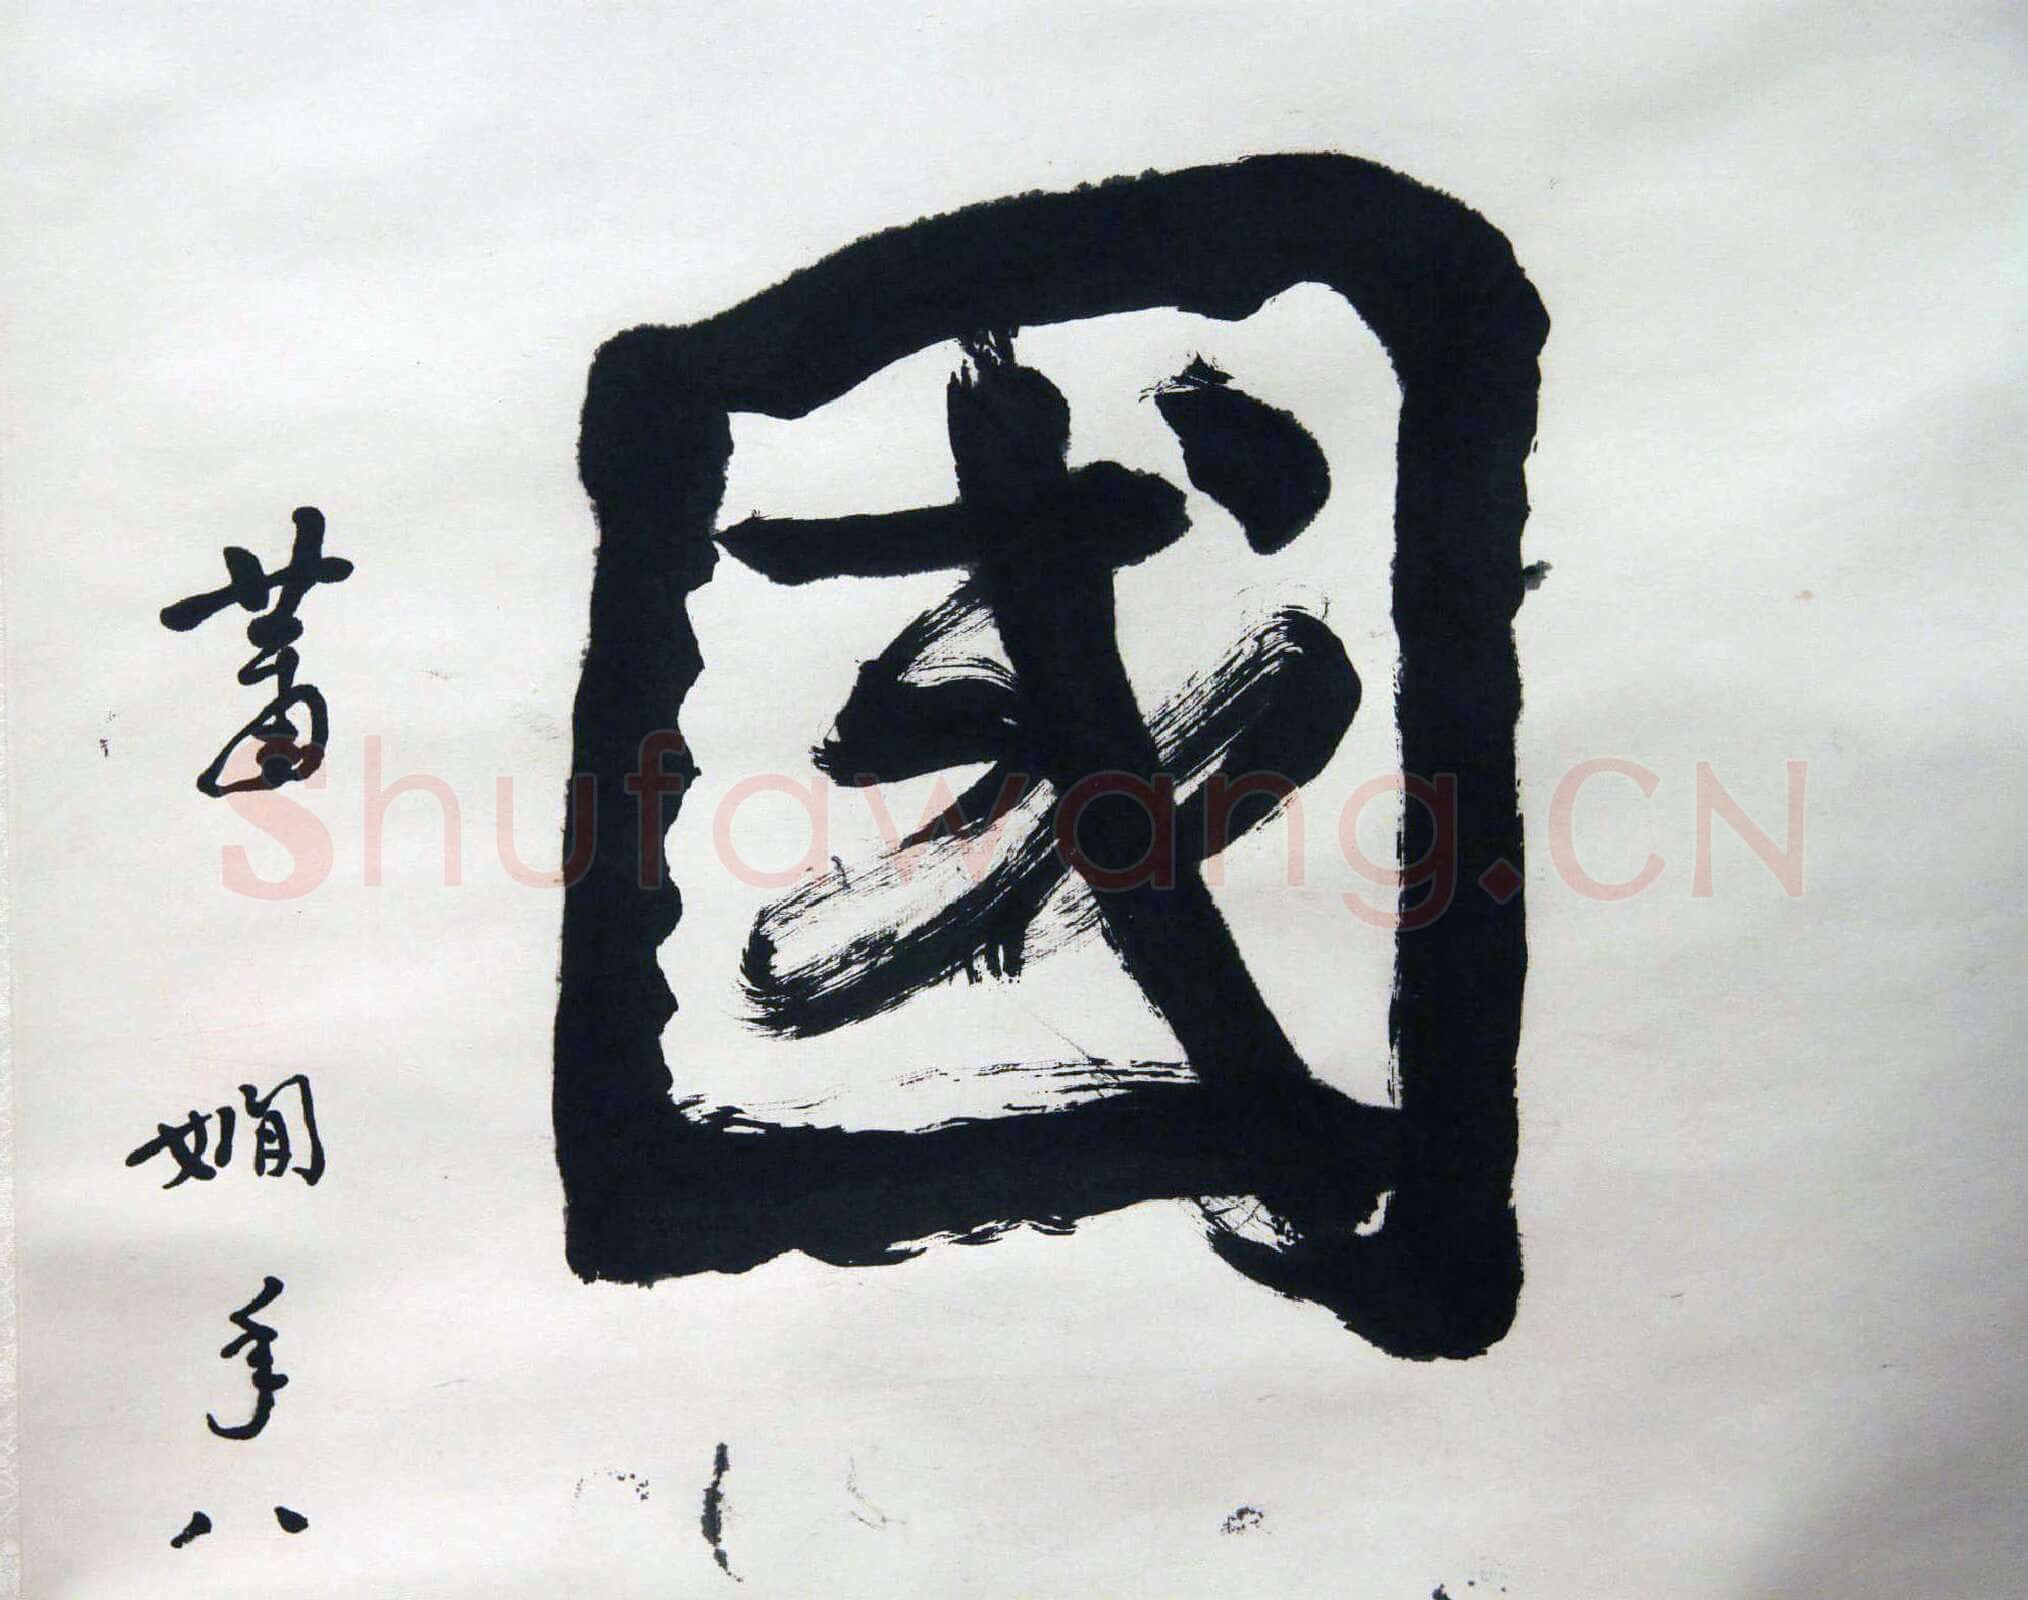 國
萧娴年八
shufawang.CN